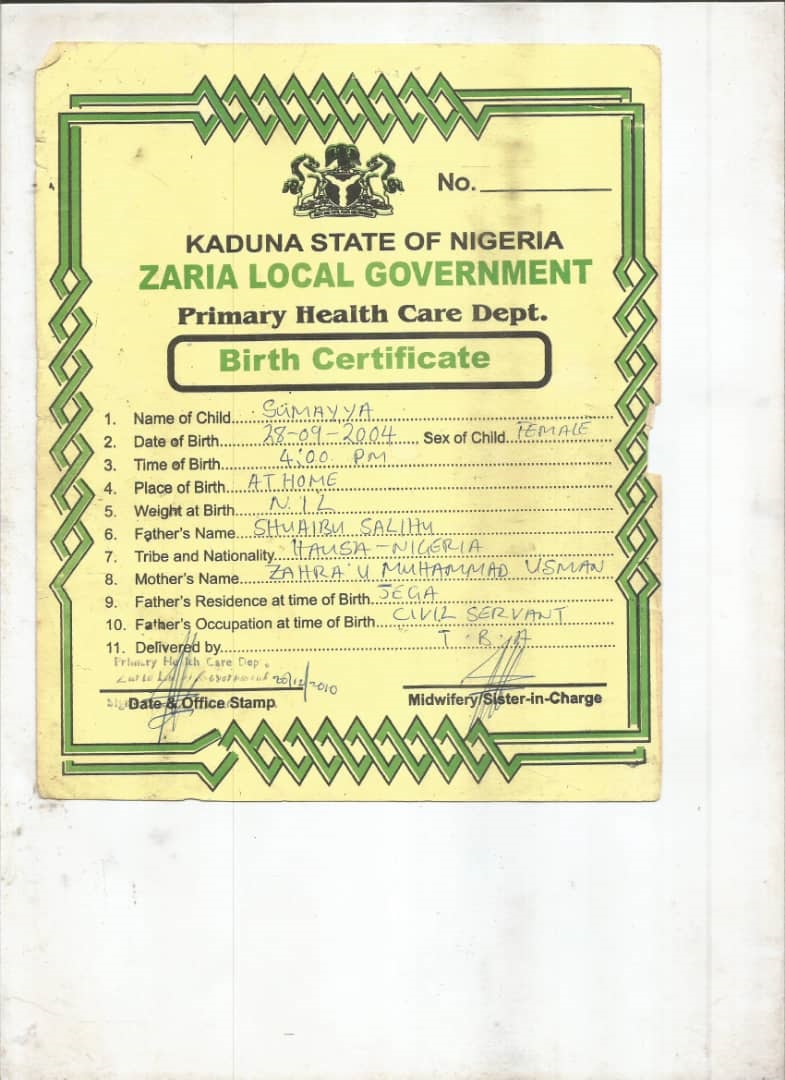 No.
KADUNA STATE OF NIGERIA
ZARIA LOCAL GOVERNMENT
Primary Health Care Dept.
Birth Certificate
1. Name of Child SUMAYYA
2. Date of Birth 28-09-2004 Sex of Child FEMALE
3. Time of Birth 4:00 PM
4. Place of Birth AT HOME
5. Weight at Birth NIL
6. Father's Name SHUAIBU SALIHU
7. Tribe and Nationality HAUSA-NIGERIA
8. Mother's Name ZAHRA'U MUHAMMAD USMAN
9. Father's Residence at time of Birth JEGA
10. Father's Occupation at time of Birth CIVIL SERVANT
11. Delivered by T.B.A
Primary Health Care Dep
20/12/2010
Date & Office Stamp Midwifery/Sister-in-Charge